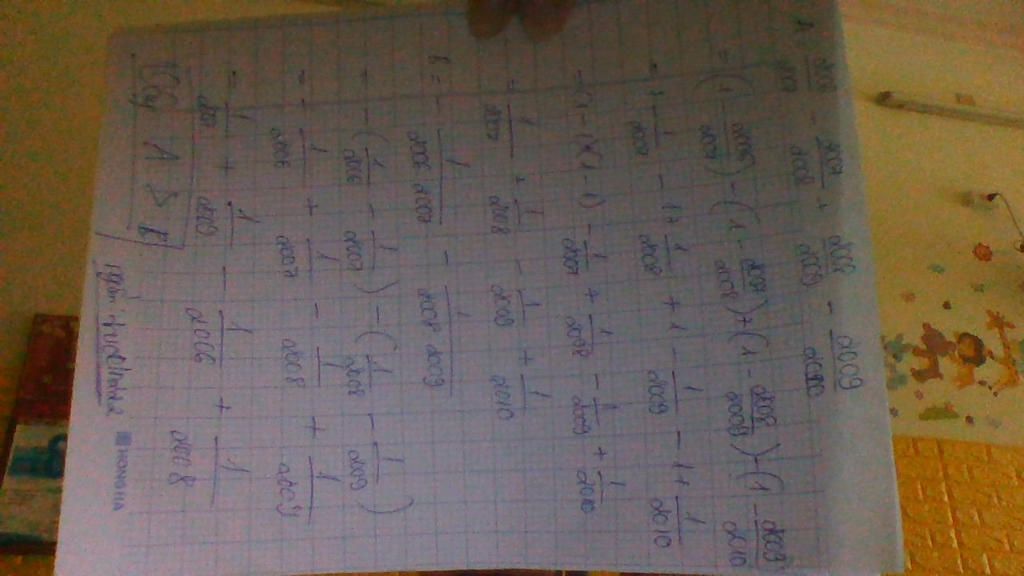 A = 2006/2007 - 2007/2008 + 2008/2009 - 2009/2010
= (1 - 2006/2007) - (1 - 2007/2008) + (1 - 2008/2009) + (1 - 2009/2010)
= 1 - 1/2007 - 1 + 1/2008 + 1 - 1/2009 - 1 + 1/2010
= (1 - 1)(1 - 1) - 1/2007 + 1/2008 - 1/2009 + 1/2010
= - 1/2007 + 1/2008 - 1/2009 + 1/2010
B = - 1/2006.2007 - 1/2008.2009
= - (1/2006 - 1/2007) - (1/2008 - 1/2009)
= - 1/2006 + 1/2007 - 1/2008 + 1/2009
= 1/2007 + 1/2009 - 1/2006 + 1/2008
Vậy A > B